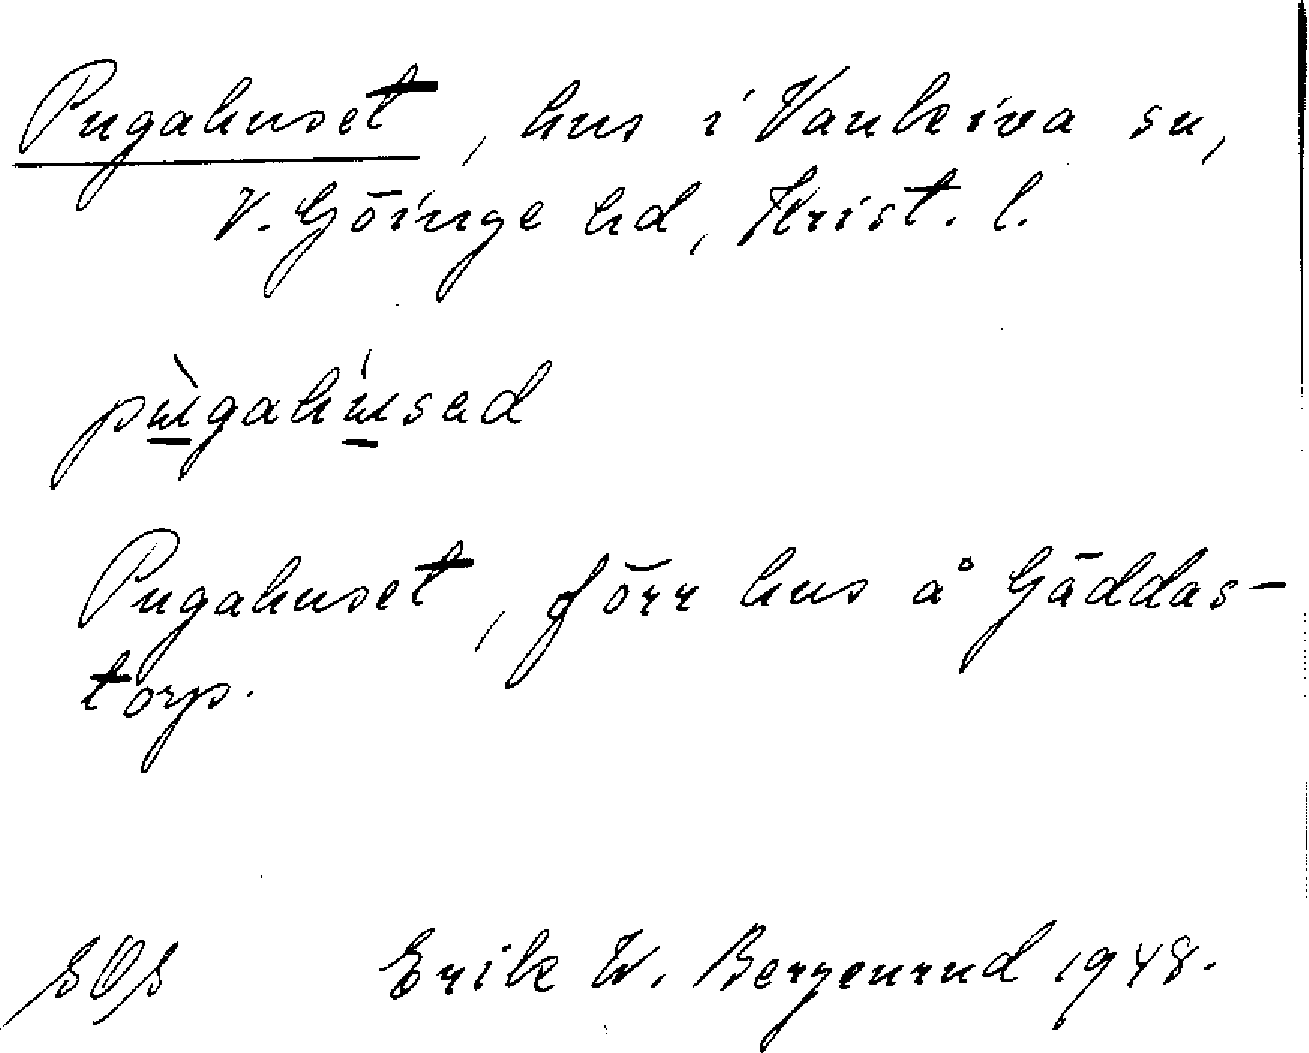 Pugahuset, hus i Vankiva sn,
V. Göinge hd, Krist. l.
pùgahúsad
Pugahuset, förr hus å Gäddas-
torp.
SOS Erik W. Bergenrud 1948.